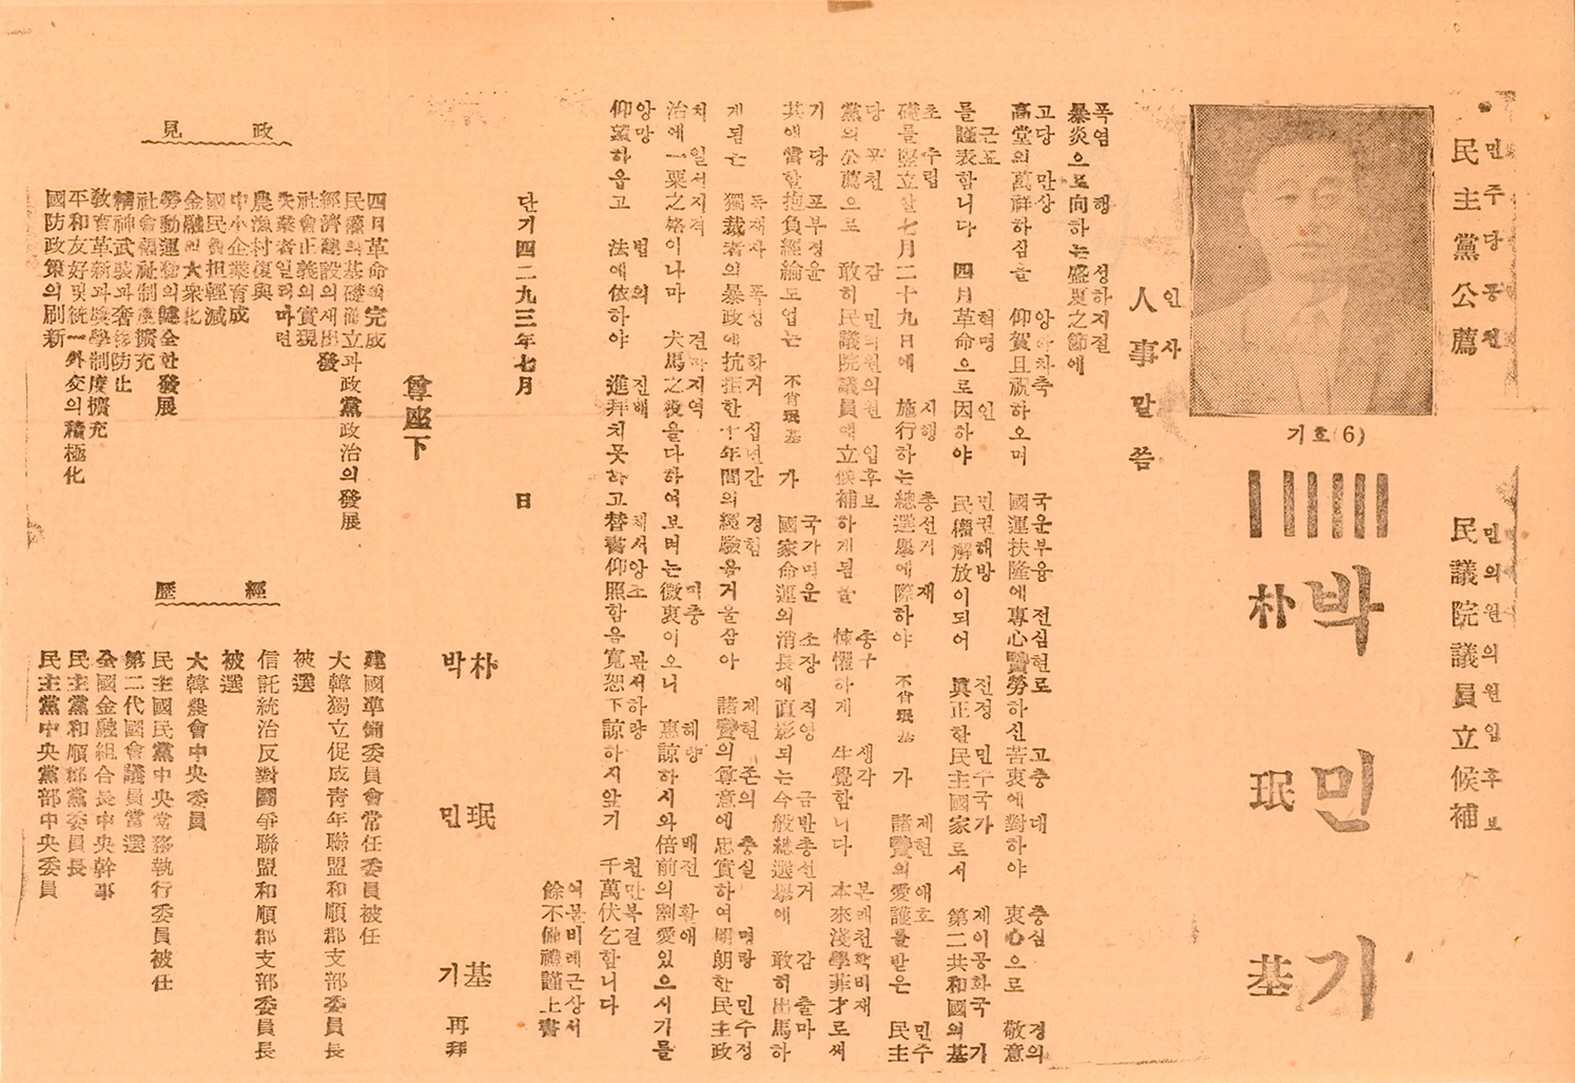 민주당공천
民主黨公薦
민의원의원입후보
民議院議員立候補
기호(6)
박민기
朴珉基
인사
人事말씀
폭염 행 성하지절
暴炎으로向하는盛夏之節에
고당 만상 앙하차축 국운부융 전심현로 고충 대 충심 경의
高堂의萬祥하심을 仰賀且祝하오며 國運扶隆에專心賢勞하신苦衷에對하야 衷心으로 敬意
근표 혁명 인 민권해방 진정 민주국가 제이공화국 기
를謹表합니다 四月革命으로因하야 民權解放이되어 眞正한民主國家로서 第二共和國의基
초 수립 시행 총선거 재 제현 애호 민주
礎를竪立할七月二十九日에 施行하는總選擧에際하야 不肖珉基가 諸賢의愛護를받은 民主
당 공천 감 민의원의원 입후보 송구 생각 본래천학비재
黨의公薦으로 敢히民議院議員에立候補하게됨을 悚懼하게 生覺합니다 本來淺學菲才로써
기 당 포부경윤 국가명운 소장 직영 금반총선거 감 출마
其에當할抱負經綸도업는 不肖珉基가 國家命運의消長에直影되는今般總選擧에 敢히出馬하
독재자 폭정 항거 십년간 경험 제현 존의 충실 명랑 민주정
게됨는 獨裁者의暴政에抗拒한十年間의經驗을거울삼아 諸賢의尊意에忠實하여明朗한民主政
치 일속지격 견마지역 미충 혜량 배전 할애
治에一粟之格이나마 犬馬之役을다하여보려는微衷이오니 惠諒하시와倍前의割愛있으시기를
앙망 법 의 진배 체서앙조 관서하량 천만복걸
仰望하옵고 法에依하야 進拜치못하고替書仰照함을寬恕下諒하시압기 千萬伏乞합니다
여불비례근상서
餘不備禮謹上書
단기四二九三年七月 日
朴珉基
박민기 再拜
尊座下
政見
四月革命의完成
民議의基礎確立과政黨政治의發展
經濟建設의재出發
社會正義의實現
失業者일터마련
農漁村復興
中小企業育成
國民負担輕減
金融의大衆化
勞動運動의健全한發展
社會福祉制度擴充
精神武裝과奢侈防止
敎育革新과奬學制度擴充
平和友好및統一外交의積極化
國防政策의刷新
經歷
建國準備委員會常任委員被任
大韓獨立促成靑年聯盟和順郡支部委員長
被選
信託統治反對鬪爭聯盟和順郡支部委員長
被選
大韓農會中央委員
民主國民黨中央常務執行委員被任
第二代國會議員當選
全國金融組合長中央幹事
民主黨和順郡黨委員長
民主黨中央黨部中央委員